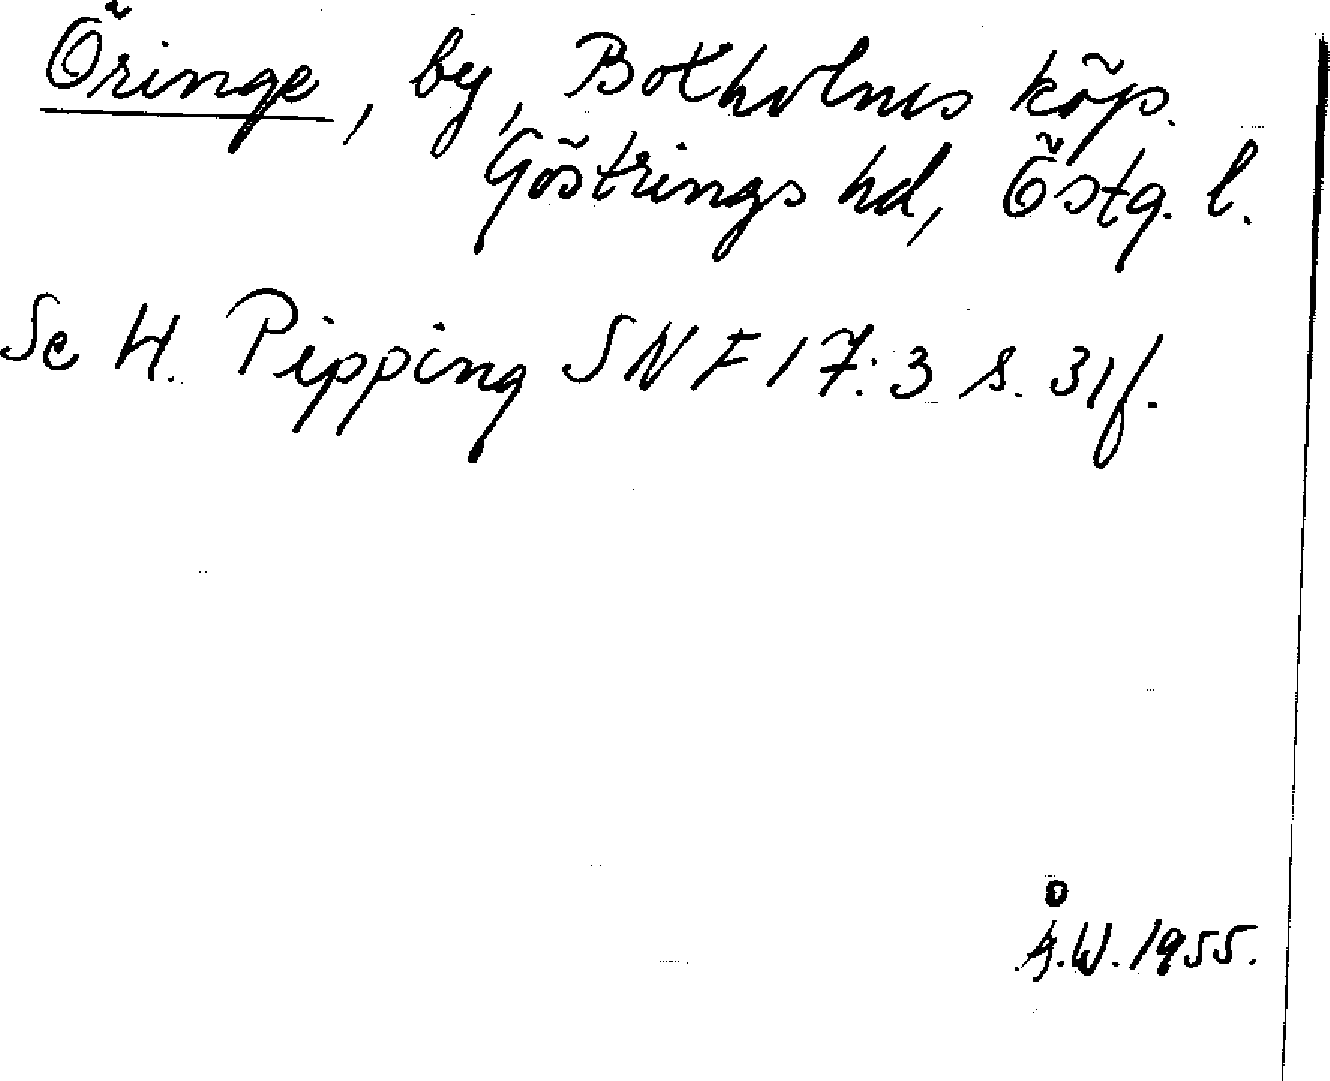 Öringe, by, Botholmes köp.
Göstrings hd, Östg. l.
Se H. Pipping SNF 17:3 s. 31f.
Å.W. 1955.